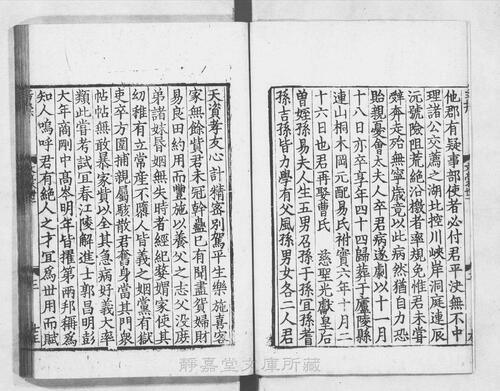 他郡有疑事部使者必付君平決無不中
理諸公交薦之湖北控川峽岸洞庭連辰
沅號險阻荒絕沿檄者率規免惟君未嘗
辭奔走殆無寧歲竟以此病然猶自力恐
貽親憂會太夫人卒君病遂劇以十一月
十八日亦卒享年四十四歸葬于廬陵縣
連山桐木岡元配易氏祔實六年十月二
十六日也君再娶曹氏 慈聖光獻皇后
曾姪孫易夫人生五男召孫子孫宜孫耆
孫吉孫皆力學有父風孫男女各二人君
天資孝友心計精密別駕平生樂施喜客
家無餘貲君未冠幹蠱已有聞晝貿婦財
易良田約用而豐施以養父之志父没族
弟諸妹婚姻無失時者經紀嫠媦家使其
幼稚有立常產不隳人皆義之姻黨有獄
吏卒方圍捕親屬駭散君奮身當其門衆
帖帖無敢暴家貲以全其急病好義大率
類此嘗考試宜春江陵解進士郭昌明彭
大年商剛中髙岑明年皆擢第兩邦稱爲
知人嗚呼君有絕人之才宜爲世用而賦
靜嘉堂文庫所藏